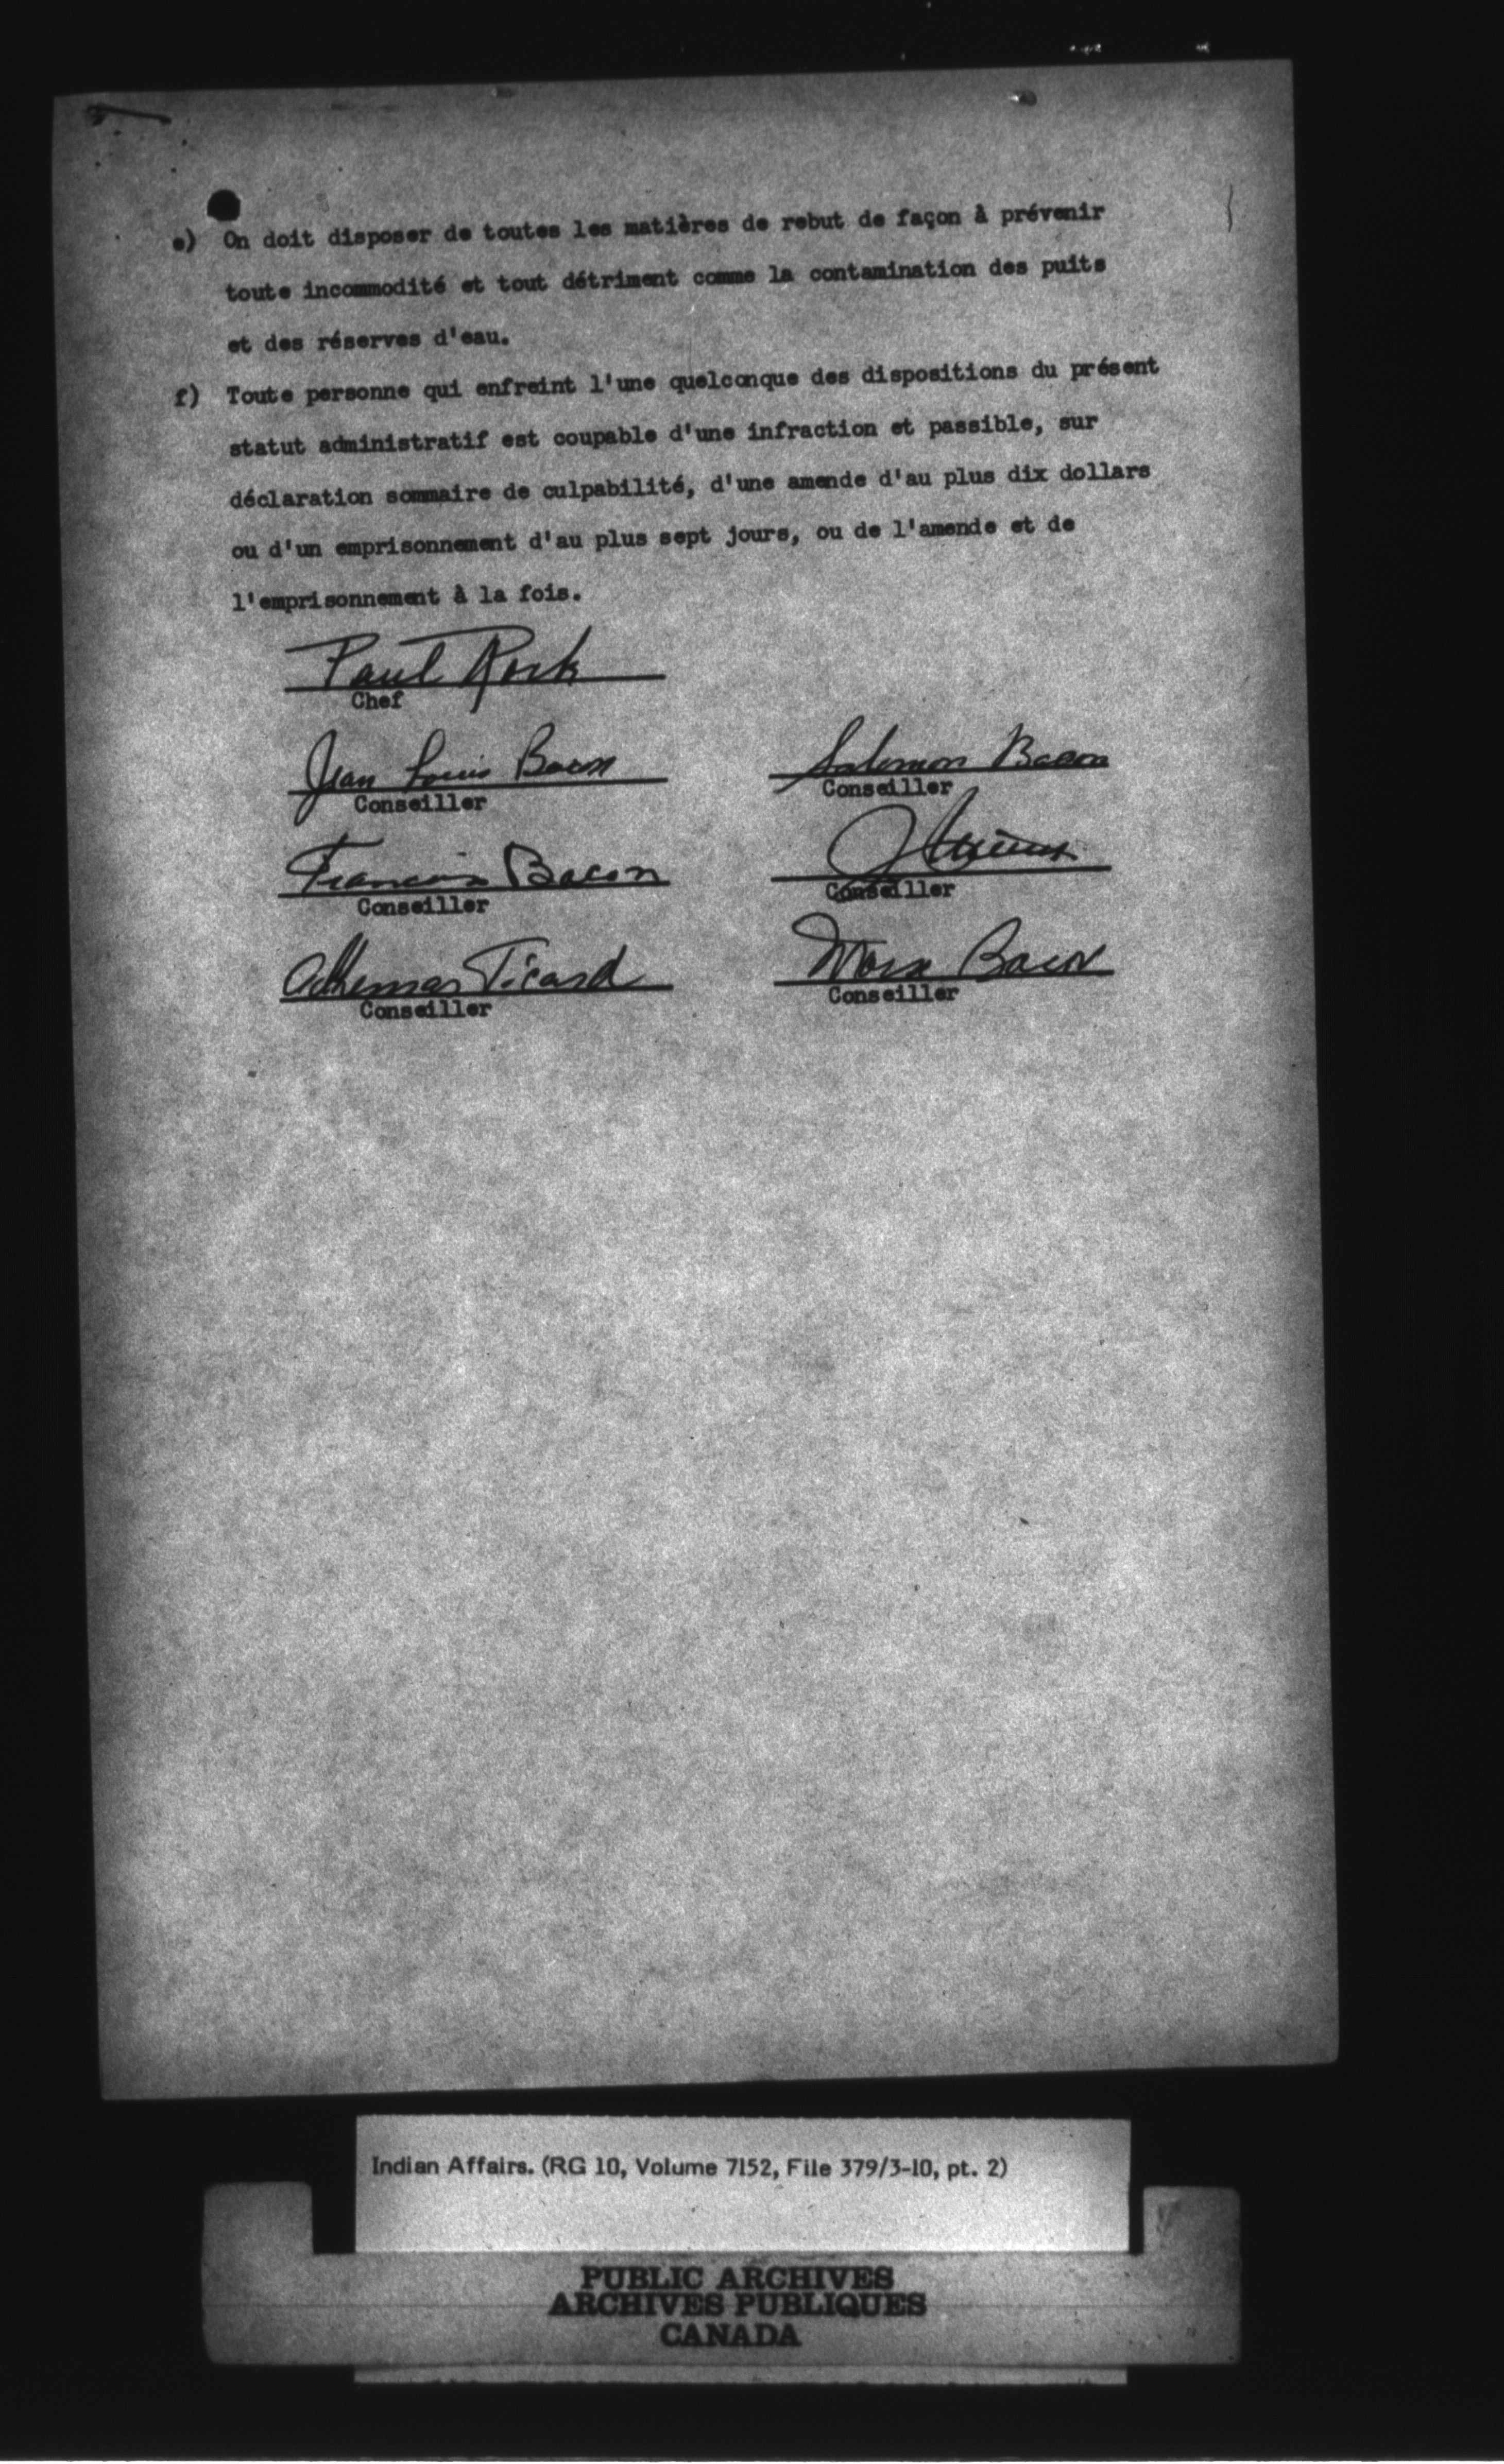 e) On doit disposer de toutes les matières de rebut de façon à prévenir
toute incommodité et tout détriment comme la contamination des puits
et des réserves d'eau.
f) Toute personne qui enfreint l'une quelconque des dispositions du présent
statut administratif est coupable d'une infraction et passible, sur
déclaration sommaire de culpabilité, d'une amende d'au plus dix dollars
ou d'un emprisonnement d'au plus sept jours, ou de l'amende et de
l'emprisonnement à la fois.
Paul Rock
Chef
Jean Louis Bacon
Conseiller
Salomon Bacon
Conseiller
Francis Bacon
Conseiller
Conseiller
Adhemar Picard
Conseiller
Bacon
Conseiller
Indian Affairs. (RG 10, Volume 7152, File 379/3-10, pt. 2)
PUBLIC ARCHIVES
ARCHIVES PUBLIQUES
CANADA